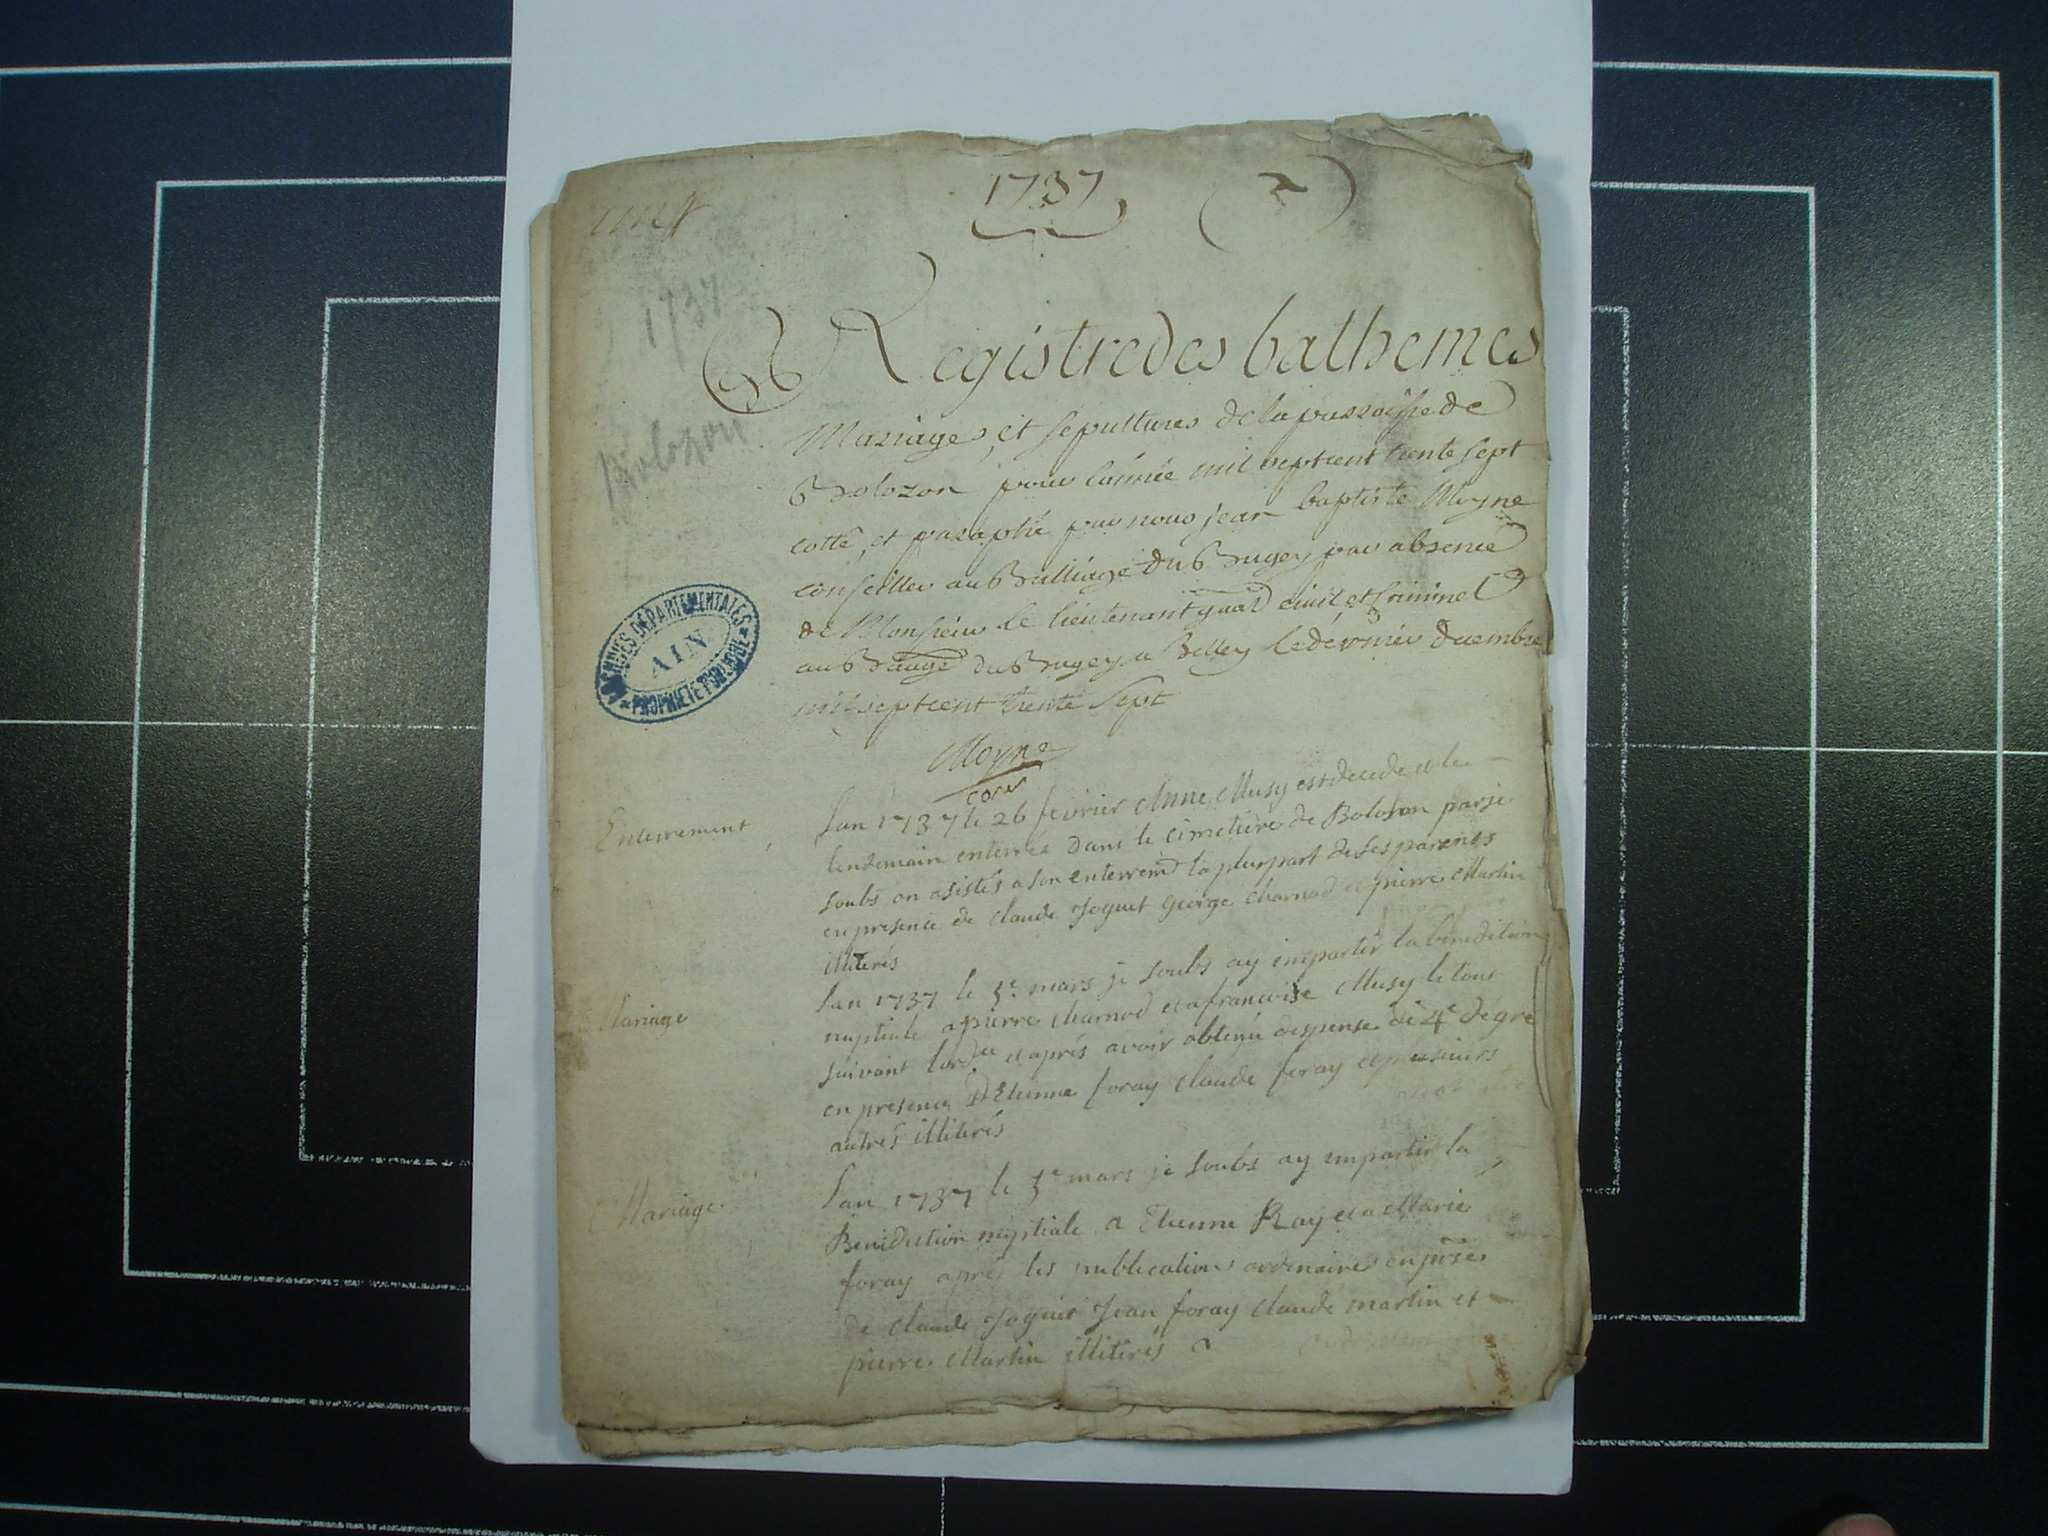 1737
1737
Registre des bathemes
Bolozon
Mariages, et sepultures de la parroisse de
Bolozon pour l'année mil septcent trente sept
cotté, et paraphé par nous jean baptiste Moyne
conseiller au Bailliage du Bugey par absence
de Monsieur le lieutenant gñal civil et Criminel
au Bailage du Bugey a Belley le dernier decembre
mil septcent trente sept
ARCHIVES DÉPARTEMENTALES
AIN
PROPRIÉTÉ PUBLIQUE
Moyne
coner
Enterrement
Lan 1737 le 26 fevrier Anne Musy est decede et le
lendemain enterrée dans le cimetiere de Bolozon par je
soubs on asistés a son enterremt la pluspart de ses parents
en presence de claude Joguet George charnod et pierre Martin
illiterés
Mariage
Lan 1737 le 5e mars je soubs ay impartir la benediction
nuptiale a pierre charnod et a francoise Musy le tout
suivant lordce et aprés avoir obtenu dispense de 4e dégré
en presence D'Etienne foray claude foray et plusieurs
autres illiterés
Mariage
Lan 1737 le 5e mars je soubs ay impartir la
Benediction nuptiale a Etienne Ray et a Marie
foray aprés les publications ordinaires en pñse
de claude Joguet Jean foray claude martin et
pierre Martin illiterés